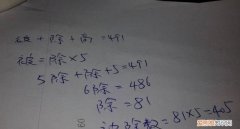 被+除+商=491
被=除×5
5除+除+5=491
6除=486
除=81
被除数=81×5=405